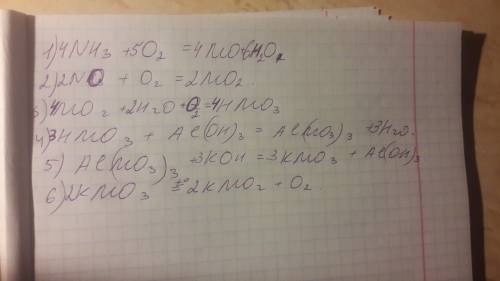 1) 4NH3 + 5O2 = 4NO + 6H2O
2) 2NO + O2 = 2NO2
3) 4NO2 + 2H2O + O2 = 4HNO3
4) 3HNO3 + Al(OH)3 = Al(NO3)3 + 3H2O.
5) Al(NO3)3 + 3KOH = 3KNO3 + Al(OH)3
6) 2KNO3 t°= 2KNO2 + O2